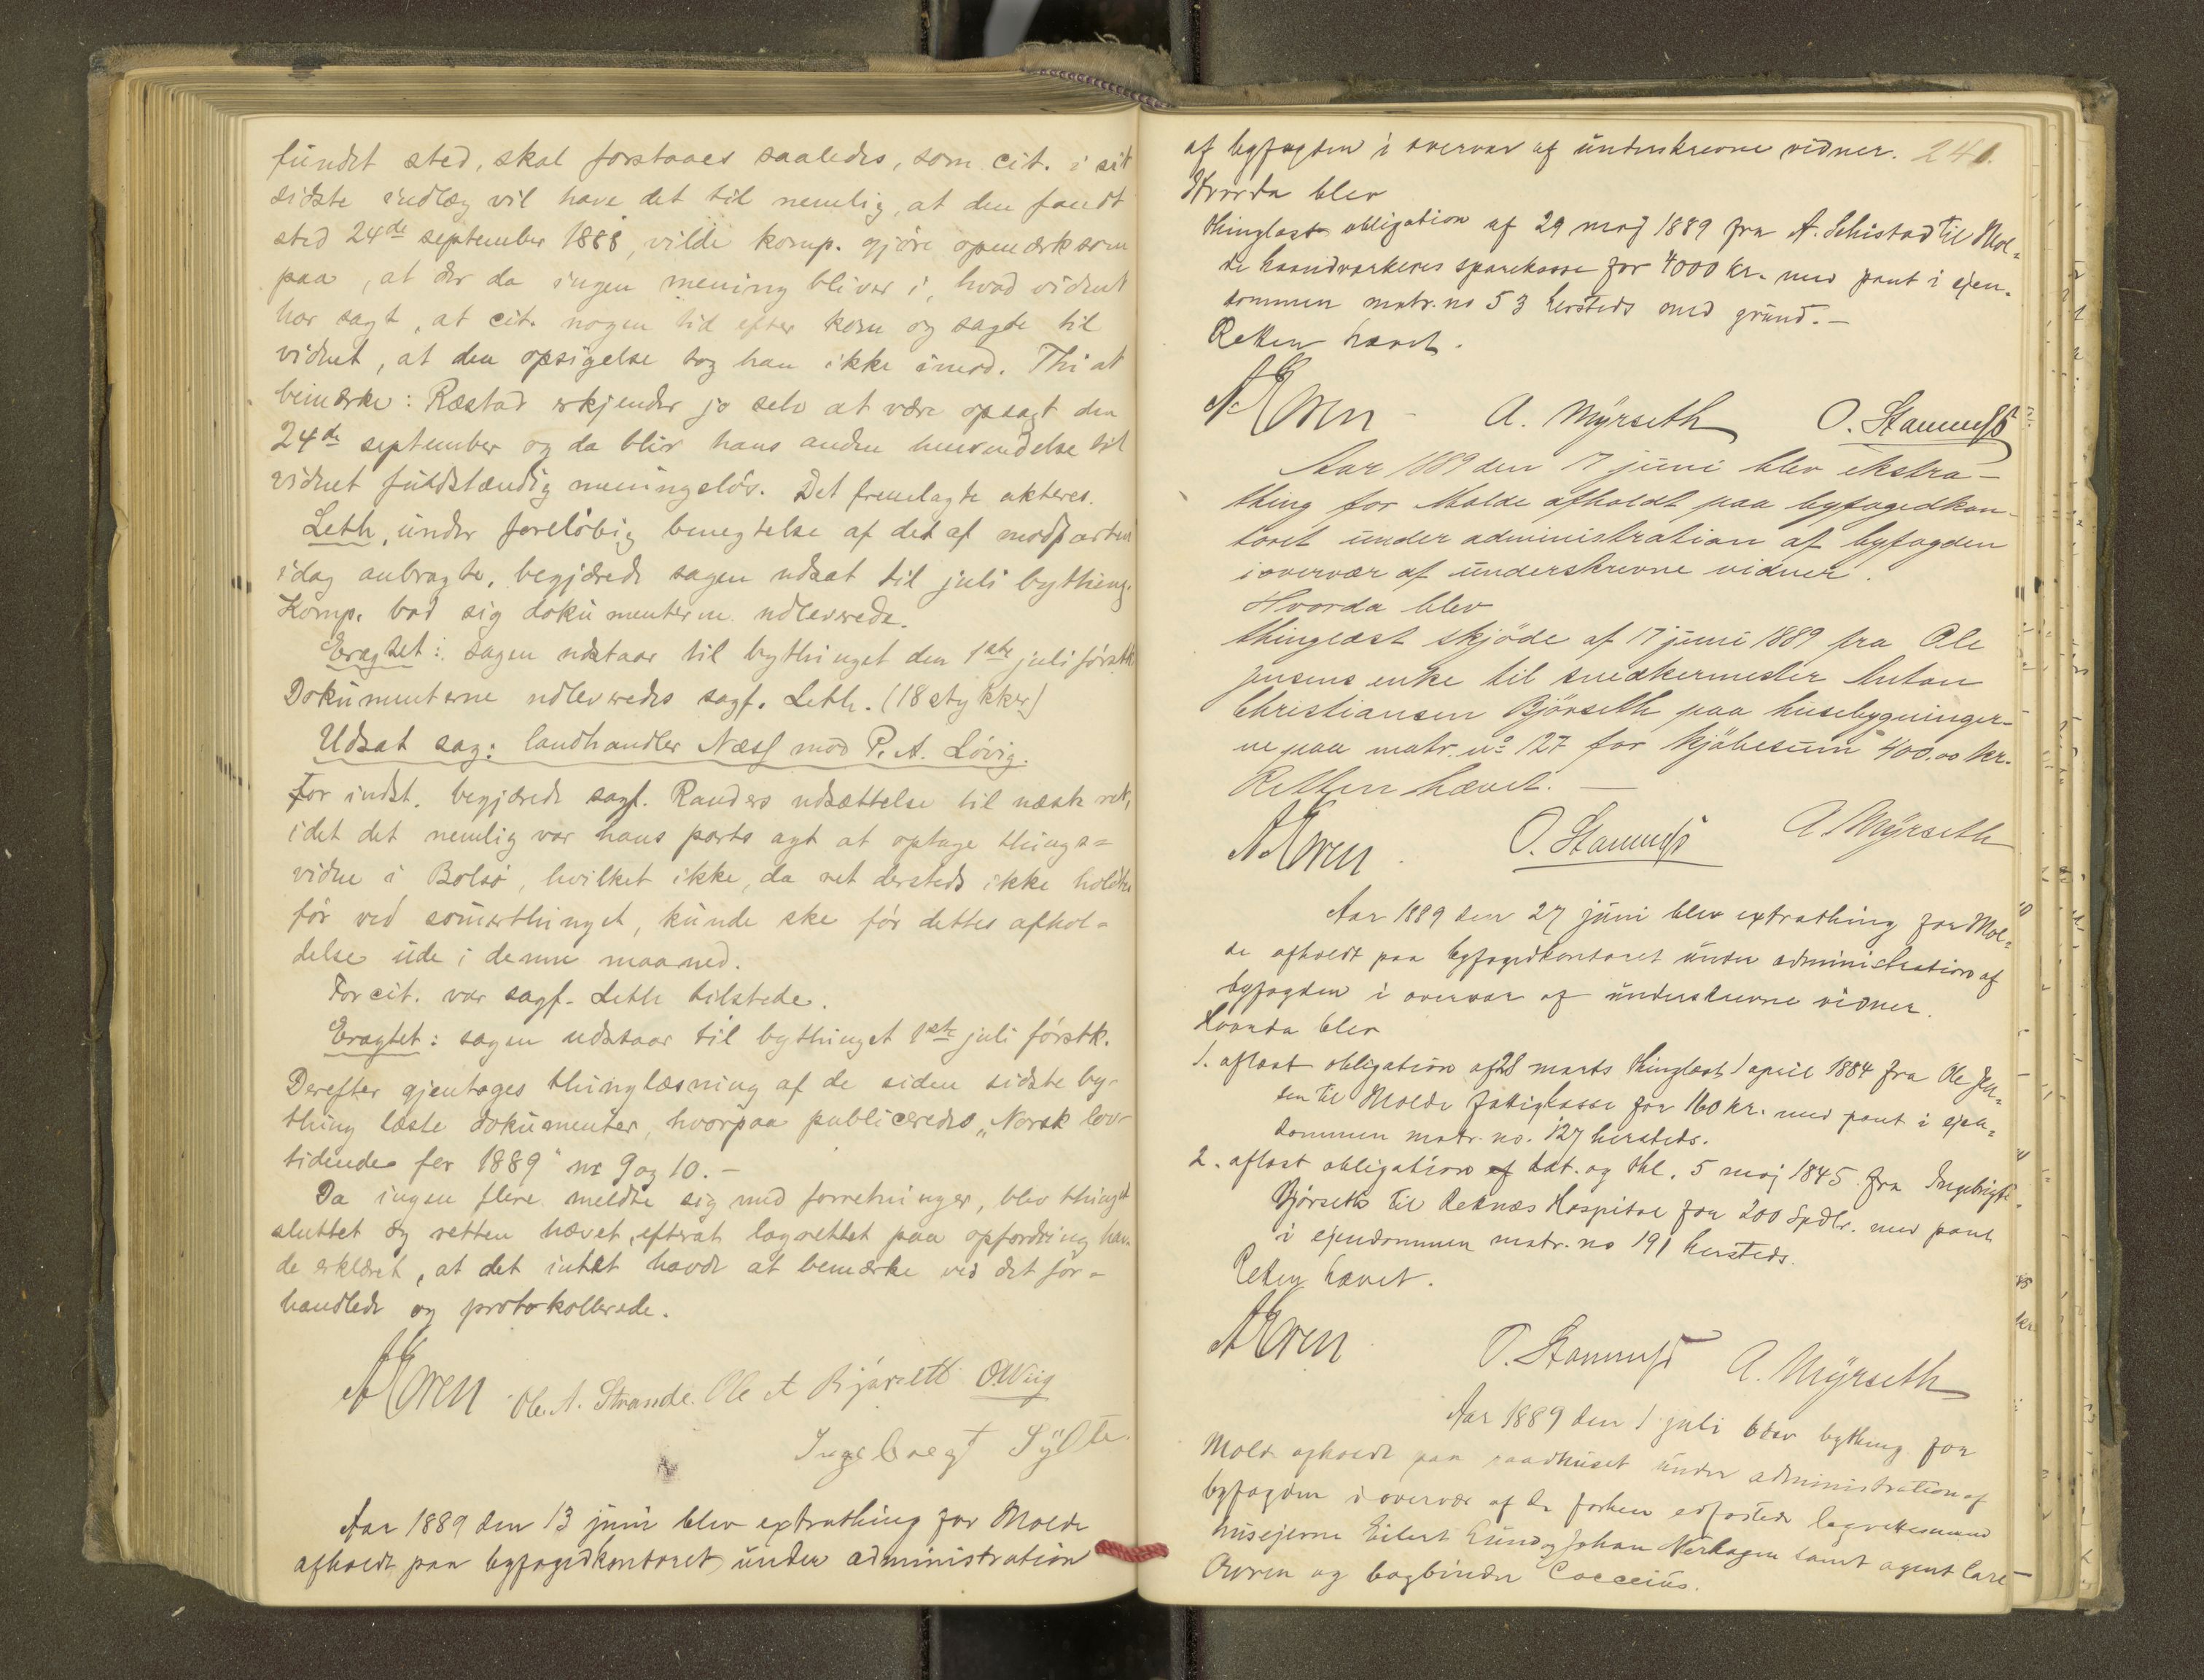 fundet sted, skal forstaaes saaledes, som cit. i sit
sidste indlæg vil have det til nemlig, at den fandt
sted 24de september 1888, vilde komp. gjøre opmerksom
paa, at der da ingen mening bliver i, hvad vidnet
har sagt, at cit. nogen tid efter kom og sagde til
vidnet, at den opsigelse tog han ikke imod. Thi at
bemærke: Ræstad erkjender jo selv at være opsagt den
24de september og da blir hans anden henvendelse til
vidnet fuldstændig meningsløs. Det fremlagte akteres.
Leth, under foreløbig benegtelse af det af modparten
idag anbragte, begjærede sagen udsat til juli bything.
Komp. bad sig dokumenterne udleverede.
Eragtet: sagen udstaar til bythinget den 1ste juli førstk.
Dokumenterne udleveredes sagf. Leth. (18 stykker)
Udsat sag: landhandler Næss mod P. A. Løvig.
For indst. begjærede sagf. Randers udsættelse til næste ret,
idet det nemlig var hans parts agt at optage things=
vidne i Bolsø, hvilket ikke, da ret dersteds ikke holdtes
før ved somerthinget, kunde ske før dettes afhol=
delse ude i denne maaned.
For cit. var sagf. Leth tilstede.
Eragtet: sagen udstaar til bythinget 1ste juli førstk.
Derefter gjentoges thinglæsning af de siden sidste by-
thing læste dokumenter, hvorpaa publiceredes „Norsk lov-
tidende for 1889" nr 9 og 10.-
Da ingen flere meldte sig med forretninger, blev thinget
sluttet og retten hævet, efterat lagrettet paa opfordring hav-
de erklæret, at det intet havde at bemærke ved det for=
handlede og protokollerede.
Ole A. Strande. Ole A Bjørseth
Ingebregt Sylte.
Aar 1889 den 13 juni blev extrathing for Molde
afholdt paa byfogedkontoret under administration
241.
af byfogden i overvær af underskrevne vidner.
Hvorda blev
thinglæst obligation af 29 maj 1889 fra A. Schistad til Mol=
de haandværkeres sparekasse for 4000 kr. med pant i ejen-
dommen matr. no 53 hersteds med grund.-
Retten hævet.
A. Myrseth
Aar 1889 den 17 juni blev ekstra-
thing for Molde afholdt paa byfogedkon-
toret under administration af byfogden
i overvær af underskrevne vidner.
Hvorda blev
thinglæst skjøde af 17 juni 1889 fra Ole
Jensens enke til snedkermester Anton
Christiansen Bjørseth paa husebygninger-
ne paa matr. no 127 for kjøbesum 400.00 kr.
Retten hævet.
A. Myrseth
Aar 1889 den 27 juni blev extrathing for Mol=
de afholdt paa byfogedkontoret under administration af
byfogden i overvær af underskrevne vidner.
Hvorda blev
1. aflæst obligation af 28 marts thinglæst 1 april 1884 fra Ole Jen=
sen til Molde fattigkasse for 160 kr. med pant i ejen=
dommen matr. no. 127 hersteds.
2. aflæst obligation af dat. og thl. 5 maj 1845 fra Ingebrigt
Bjørseth til Reknæs Hospital for 200 Spdlr. med pant
i ejendommen matr. no 191 hersteds.
Retten hævet.
A. Myrseth
Aar 1889 den 1 juli blev bything for
Molde afholdt paa raadhuset under administration af
byfogden i overvær af de forhen edfæstede lagrettesmænd
husejerne Eilert Lund og Johan Nerhagen samt agent Carl
Owren og bogbinder Cocceius.